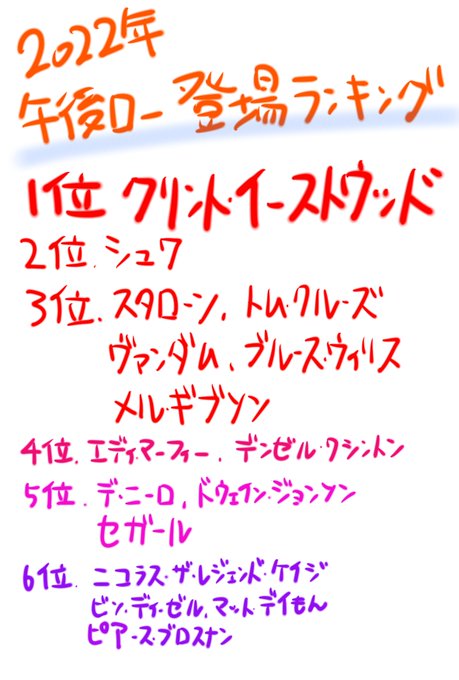 2022年
午後ロー登場ランキング
1位 クリント・イーストウッド
2位、シュワ
3位、スタローン、トム・クルーズ
ヴァンダム、ブルース・ウィリス
メル・ギブソン
4位、エディ・マーフィー、デンゼル・ワシントン
5位、デ・ニーロ、ドウェイン・ジョンソン
セガール
6位、ニコラス・ザ・レジェンド・ケイジ
ビン・ディーゼル、マット・デイもん
ピアース・ブロスナン